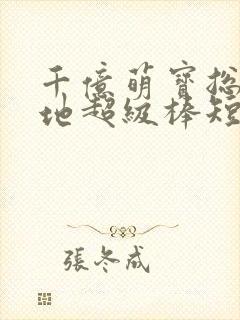 千億萌寶捴
地超級棒短
張冬成